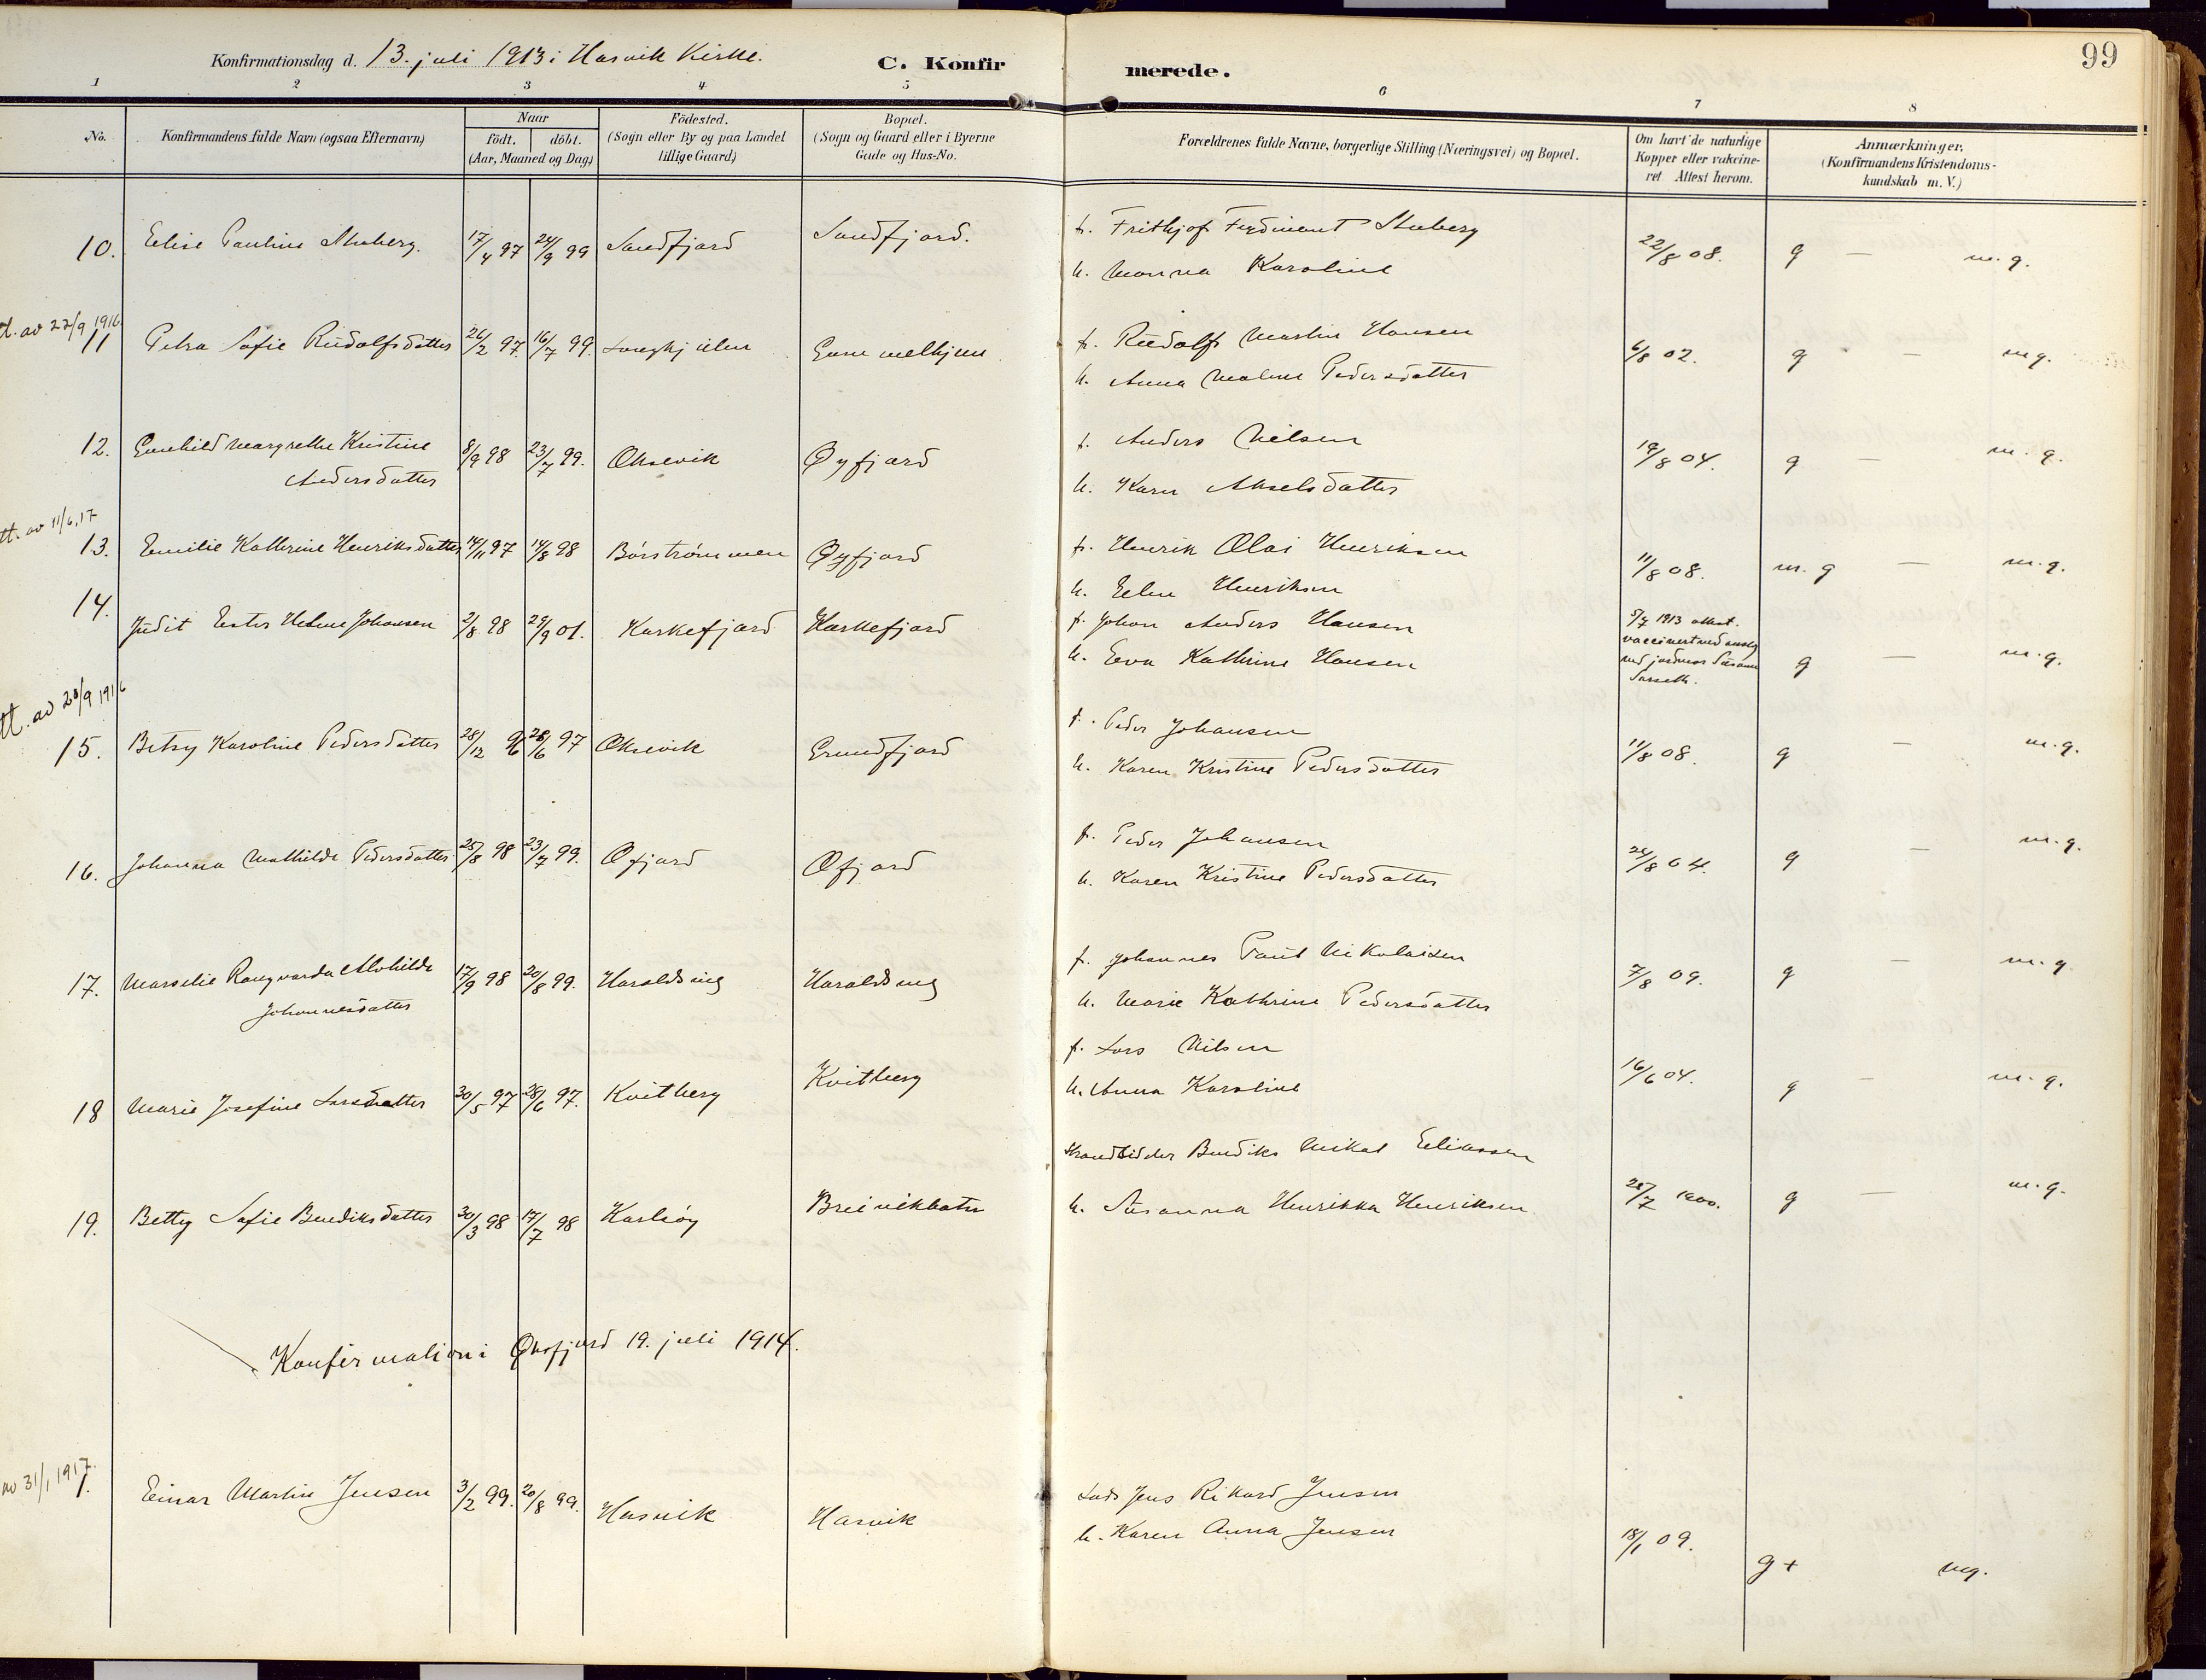 99
Konfirmationsdag d. 13. juli 1913 i Hasvik Kirke.
C. Konfirmerede.
1 2 3 4 5 6 7 8
No.
Konfirmandens fulde Navn (ogsaa Efternavn)
Naar
födt. döbt.
(Aar, Maaned og Dag)
Födested.
(Sogn eller By og paa Landet
tillige Gaard)
Bopæl.
(Sogn og Gaard eller i Byerne
Gade og Hus-No.
Forældrenes fulde Navne, borgerlige Stilling (Næringsvei) og Bopæl.
Om havt de naturlige
Kopper eller vakcine-
ret Attest herom.
Anmærkninger,
(Konfirmandens Kristendoms-
kundskab m. V.)
10. Elise Pauline Stuberg. 17/4 97 24/9 99 Sandfjord Sandfjord. f. Frithjof Ferdinant Stuberg 22/8 08. g — m. g.
h. Monna Karoline
tt. av 22/9 1916.
11 Petra Sofie Rudolfsdatter 26/2 97. 16/7 99. f. Rudolf Martin Hansen 6/8 02. g — mg.
h. Anna Maline Pedersdatter
12. Gunhild Margrethe Kristine 8/9 98 23/7 99. Oksevik Øyfjord f. Anders Nilsen 19/8 04. g — m. g.
Andersdatter
h. Karen Akselsdatter
tt. av 11/6.17
13. Emilie Kathrine Henriksdatter 14/11 97 14/8 98 Börströmmen Øyfjord f. Henrik Olai Henriksen 11/8 08. m. g — m. g.
h. Elen Henriksen
14. Judit Ester Helene Johansen 2/8 98 29/9 01. Kaskefjord Kaskefjord f. Johan Anders Hansen 5/7 1913 attest.
h. Eva Kathrine Hansen g — m. g.
tt. av 28/9 1916
15. Betsy Karoline Pedersdatter 28/12 96 28/6 97 Oksevik Grundfjord f. Peder Johansen 11/8 08. g — m. g.
h. Karen Kristine Pedersdatter
16. Johanna Mathilde Pedersdatter 25/8 98 23/7 99. Øfjord Øfjord f. Peder Johansen 24/8 04. g — m. g.
h. Karen Kristine Pedersdatter
17. Marselie Rangvarda Alvhilde 17/9 98 20/8 99. Haraldseng Haraldseng f. Johannes Paul Nikolaisen 7/8 09. g — m. g
Johannesdatter
h. Marie Kathrine Pedersdatter
18 Marie Josefine Larsdatter 30/5 97 28/6 97. Kvitberg Kvitberg f. Lars Nilsen 16/6 04. g — m. g.
h. Anna Karoline
19. Betty Sofie Bendiksdatter 30/3 98 17/7 98 Karlsöy Breivikbotn Strandsidder Bendiks Mikal Eliassen 28/7 1900. g — m. g.
h. Susanna Henrikka Henriksen
Konfirmation i Øksfjord 19. juli 1914.
av 31/1 1917.
1. Einar Martin Jensen 3/2 99. 20/8 99. Hasvik Hasvik Jens Rikard Jensen 18/1 09. g + mg.
h. Karen Anna Jensen